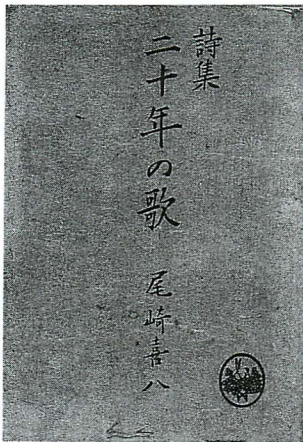 詩集
二十年の歌 尾崎喜八